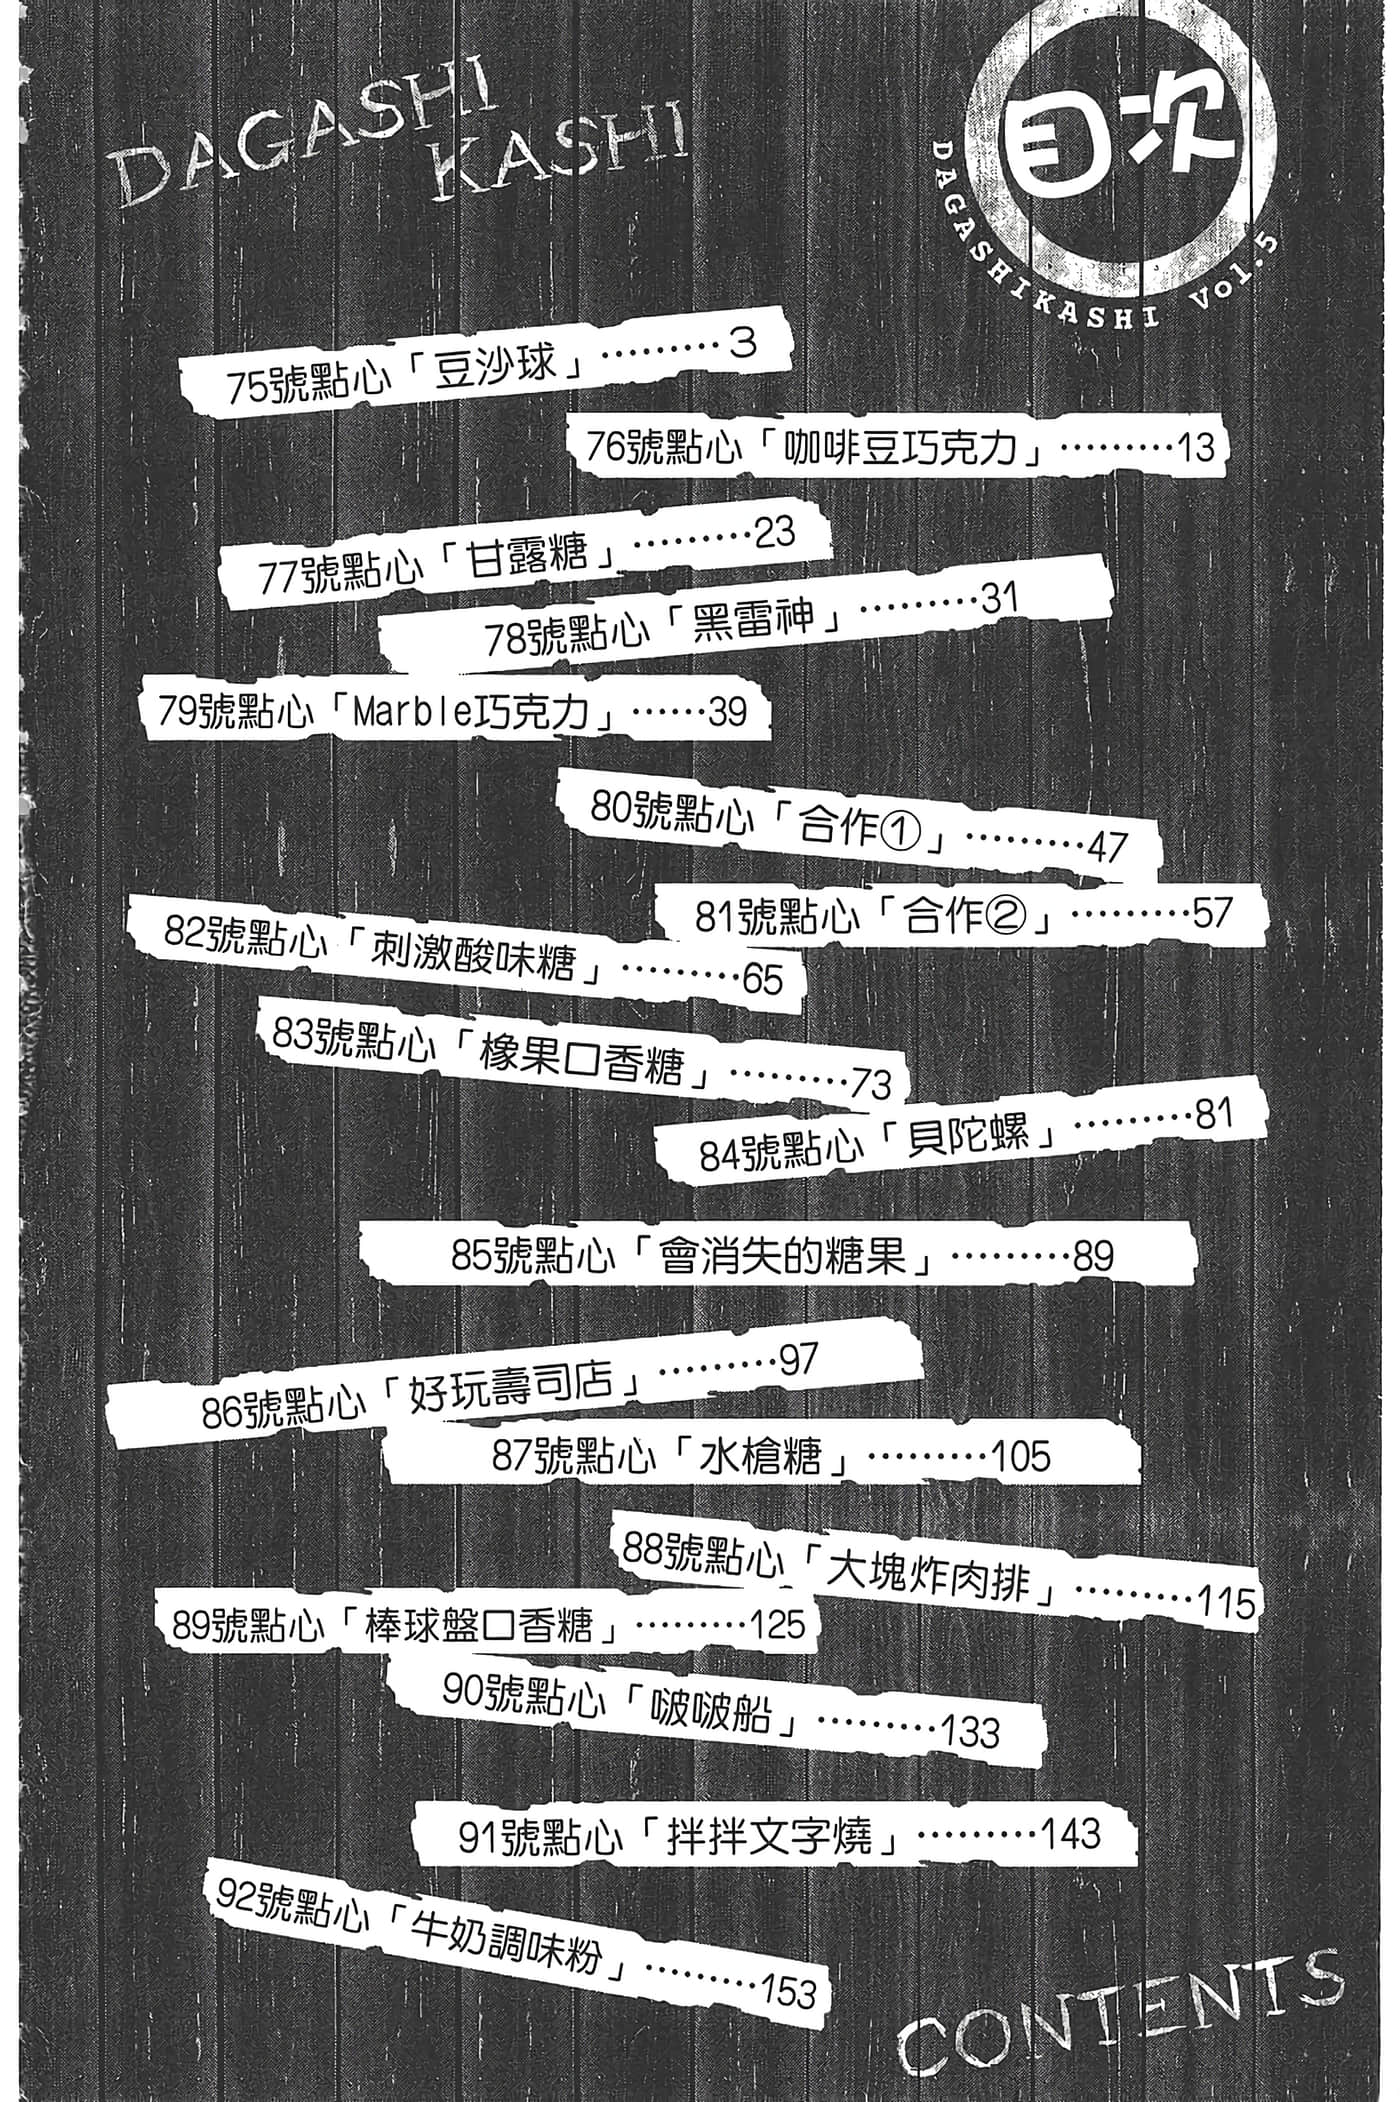 DAGASHI
KASHI
目次
DAGASHIKASHI Vol.5
75號點心「豆沙球」………3
76號點心「咖啡豆巧克力」………13
77號點心「甘露糖」………23
78號點心「黑雷神」………31
79號點心「Marble巧克力」……39
80號點心「合作①」………47
81號點心「合作②」………57
82號點心「刺激酸味糖」………65
83號點心「橡果口香糖」………73
84號點心「貝陀螺」………81
85號點心「會消失的糖果」………89
86號點心「好玩壽司店」………97
87號點心「水槍糖」………105
88號點心「大塊炸肉排」………115
89號點心「棒球盤口香糖」………125
90號點心「啵啵船」………133
91號點心「拌拌文字燒」………143
92號點心「牛奶調味粉」………153
CONTENTS